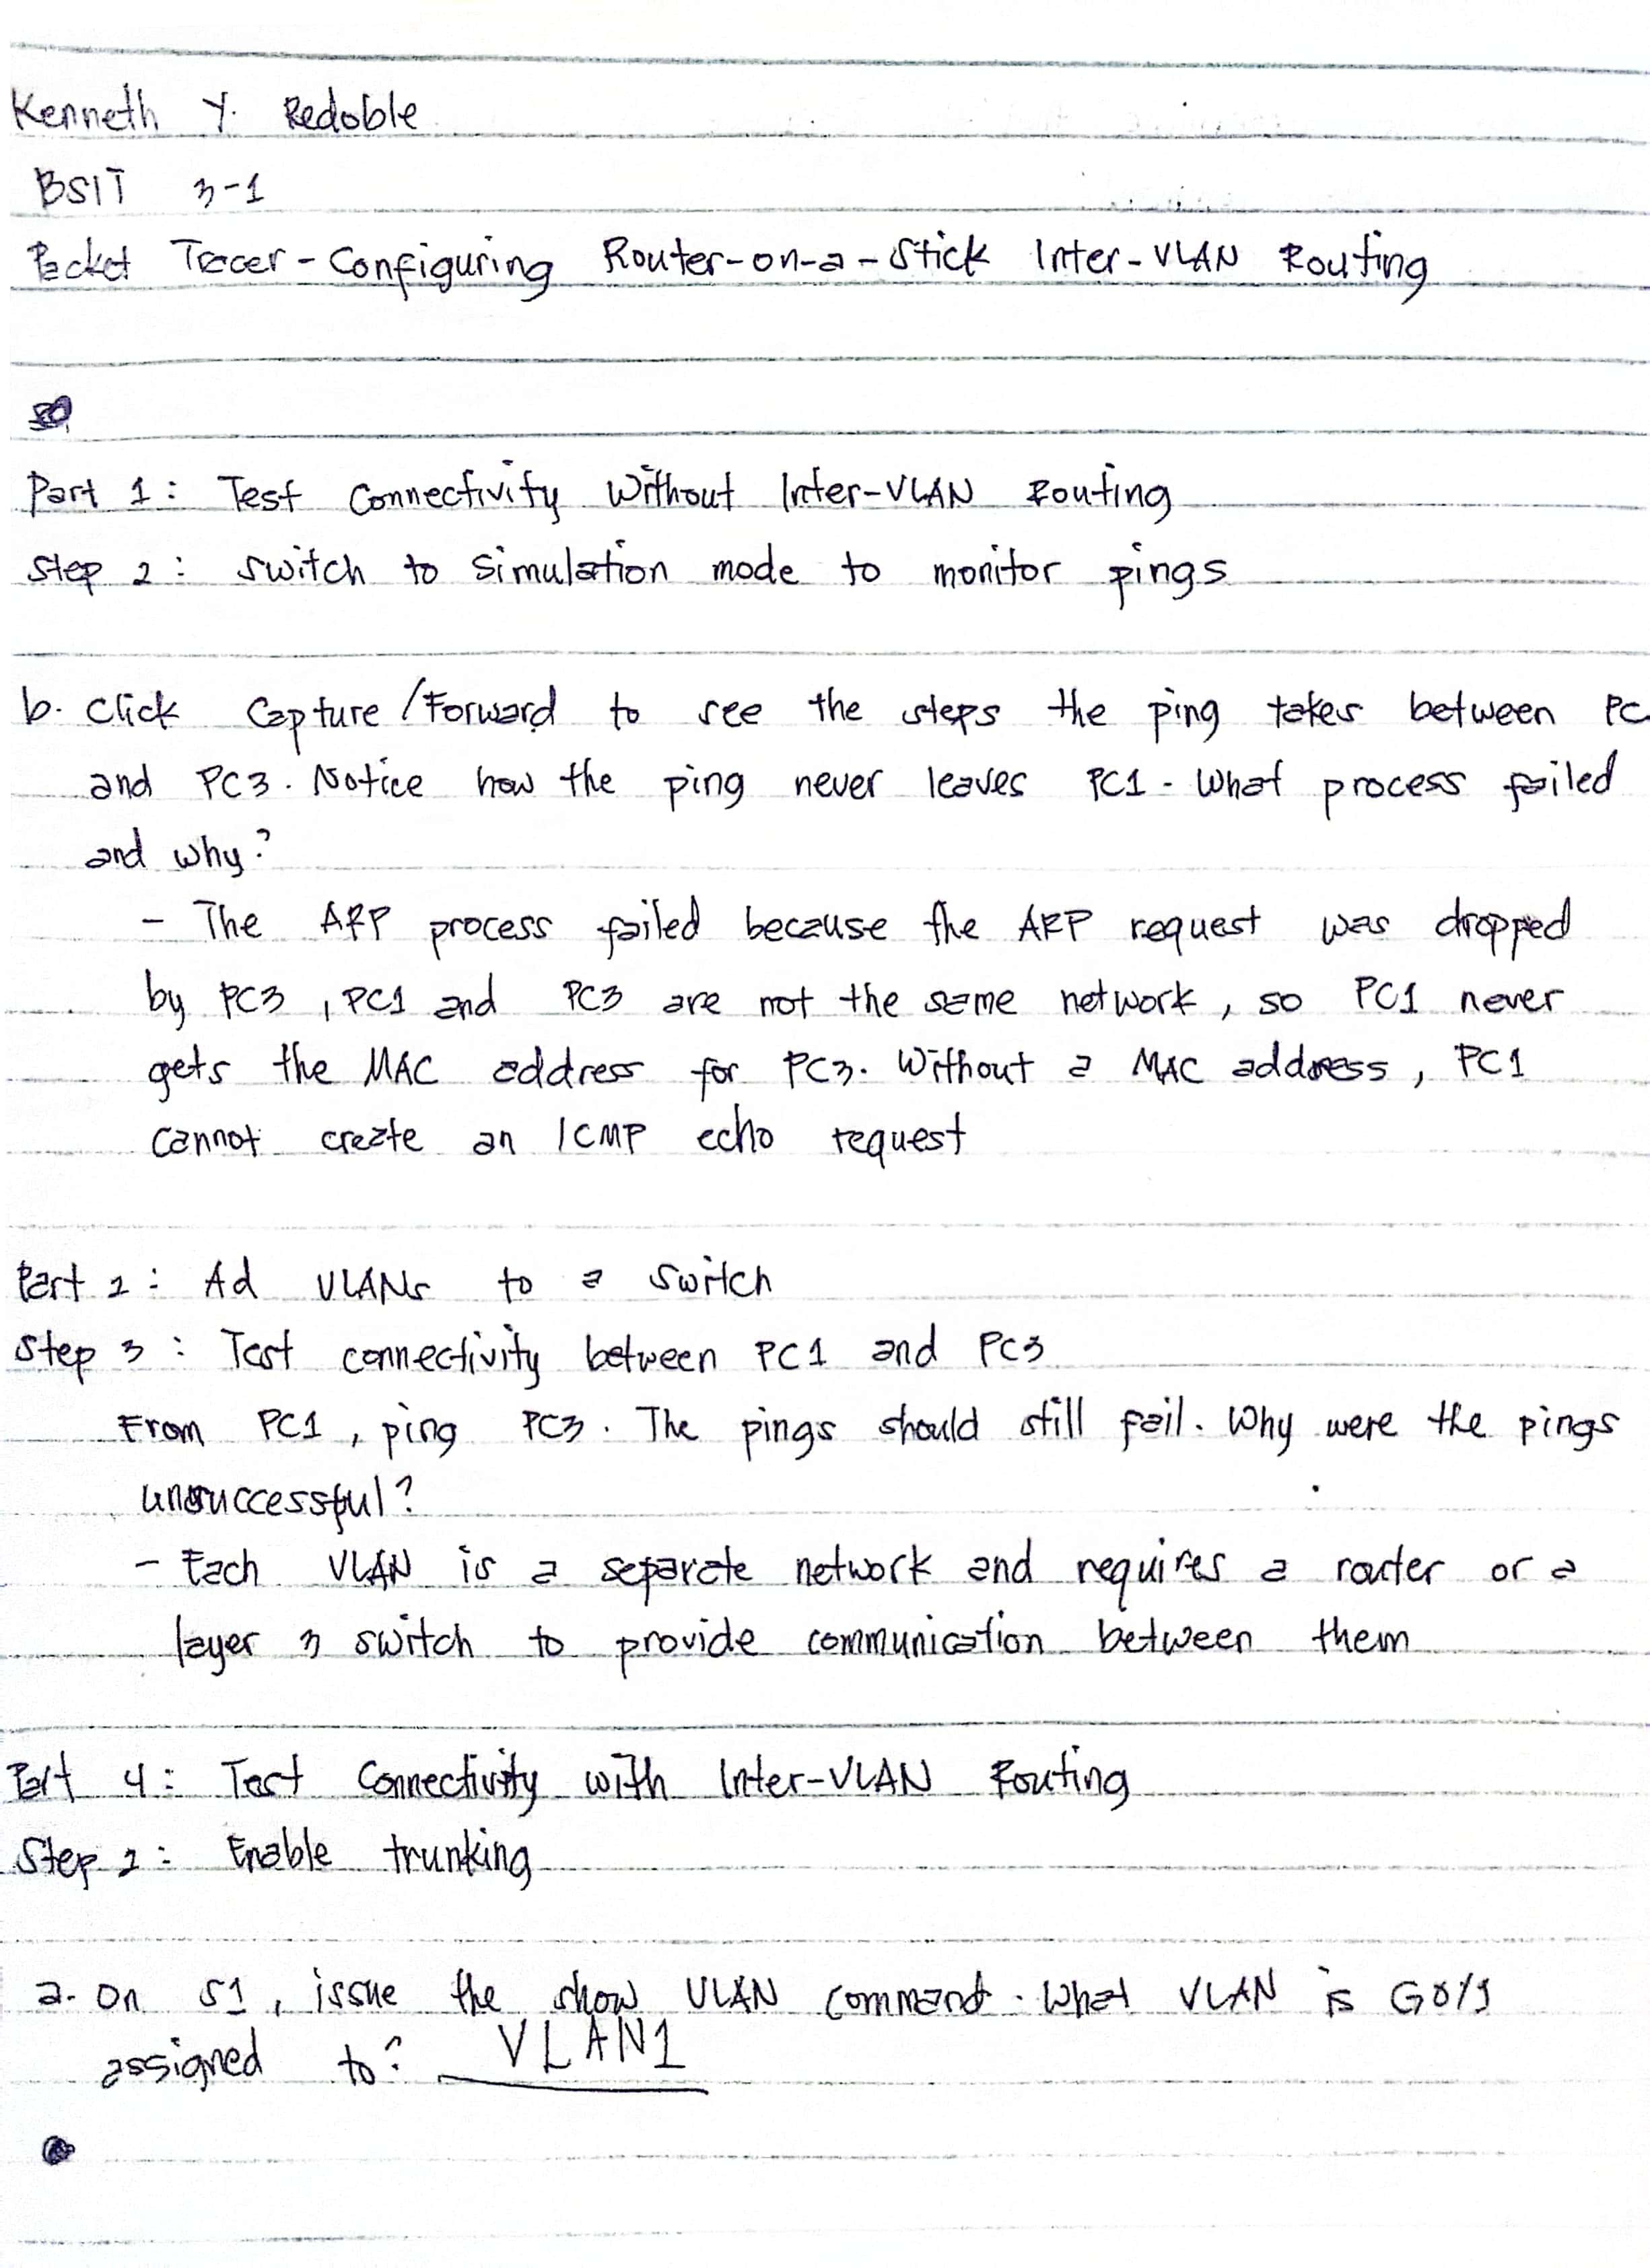 Kenneth Y. Redoble
BSIT 3-1
Packet Tracer - Configuring Router-on-a-Stick Inter-VLAN Routing
Part 1: Test Connectivity Without Inter-VLAN Routing
Step 2: Switch to simulation mode to monitor pings
b. Click Capture/Forward to see the steps the ping takes between PC
and PC3. Notice how the ping never leaves PC1. What process failed
and why?
- The ARP process failed because the ARP request was dropped
by PC3, PC1 and PC3 are not the same network, so PC1 never
gets the MAC address for PC3. Without a MAC address, PC1
cannot create an ICMP echo request
Part 2: Ad VLANs to a switch
Step 3: Test connectivity between PC1 and PC3
From PC1, ping PC3. The pings should still fail. Why were the pings
unsuccessful?
- Each VLAN is a separate network and requires a router or a
layer 3 switch to provide communication between them
Part 4: Test Connectivity with Inter-VLAN Routing
Step 2: Enable trunking
a. On S1, issue the show VLAN command. What VLAN is G0/1
assigned to? VLAN1